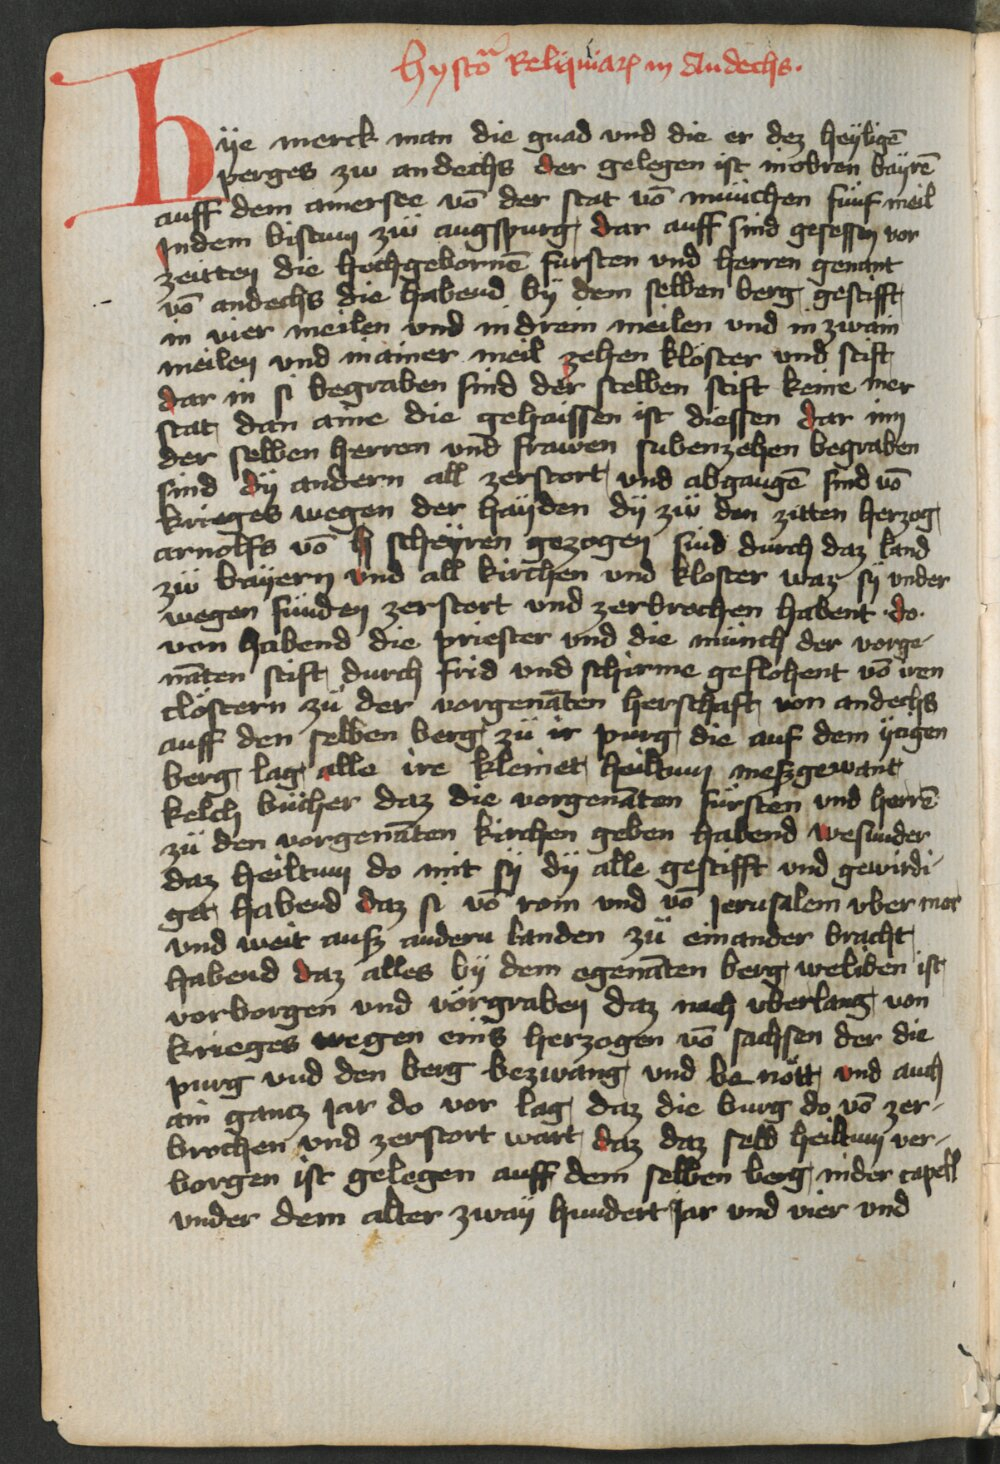 hystoᷓ Reliquiarꝝ in Andechs.
Hye merck man die gnad vnd die er dez heyligē
perges zw andechs der gelegen ist in obren bayrē
auff dem amersee vō der stat vō münchen fünf meil
Jndem bistum zü augspurg dar auff sind gesessen vor
zeitten die hochgebornē fursten vnd herren genant
vō andechs die habend bÿ dem selben berg gestifft
in vier meilen vnd in drein meilen vnd in zwain
meilen vnd in ainer meil zehen klöster vnd stift
dar in si begraben sind der selben stift keine mer
stat dan aine die gehaissen ist diessen dar inn
der selben herren vnd frawen subenzehen begraben
sind dÿ andern all zerstort vnd abgangē sind vō
krieges wegen der hayden dÿ zü den zitten herzog
arnolfs vō scheyren gezogen sind durch daz land
zü bayern vnd all kirchen vnd kloster waz sÿ vnder
wegen funden zerstort vnd zerbrochen habent ·do·
von habend die priester vnd die münch der vorge-
nāten stift durch frid vnd schirme geflohent vō iren
clöstern zü der vorgenāten herschaft von andechs
auff den selben berg zü ir purg die auf dem ÿtzgen
berg lag alle ire kleinet heiltum meszgewant
kelch bücher daz die vorgenāten fürsten vnd herrē
zü den vorgenāten kirchen geben habend wesunder
daz heiltum do mit sÿ dÿ alle gestifft vnd gewirdi-
get habend daz si vō rom vnd vō jerusalem vber mer
vnd weit ausz andern landen zü einander bracht
habend daz alles bÿ dem egenāten berg weliben ist
vorborgen vnd vörgraben daz nach vberlang von
krieges wegen eins herzogen vō sachsen der die
purg vnd den berg bezwang vnd be nött vnd auch
ain gancz jar do vor lag daz die burg do vō zer-
brochen vnd zerstort wart daz daz selb heiltum ver-
borgen ist gelegen auff dem selben berg in der capell
vnder dem alter zway hundert jar vnd vier vnd